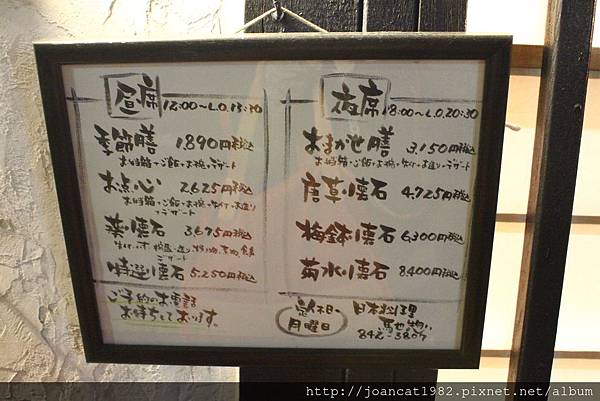 昼席 12:00～L.O.13:30
季節膳 1,890円税込
お弁当箱・ご飯・お椀・デザート
お点心 2,625円税込
お弁当箱・ご飯・お椀・先付・お造り
デザート
懐石 3,675円税込
デザート
特選懐石 5,250円税込
ご予約のお電話
お待ちしております。
夜席 18:00～L.O.20:30
おまかせ膳 3,150円税込
お弁当箱・ご飯・お椀・先付・お造り・デザート
唐草懐石 4,725円税込
梅鉢懐石 6,300円税込
菊水懐石 8,400円税込
月曜日
日本料理
842-3809
http://joancat1982.pixnet.net/album